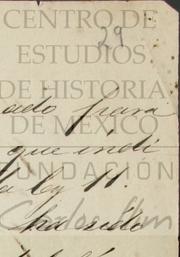 CENTRO DE
29
ESTUDIOS
DE HISTORIA
ado para
DE MÉXICO
que indi
FUNDACIÓN
la ley 11.
ha sido